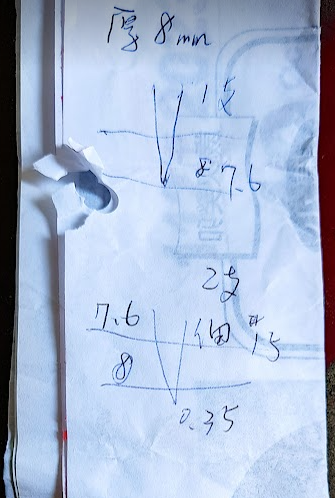 厚 8 mm
1支
8 7.6
2支
7.6
8
0.35